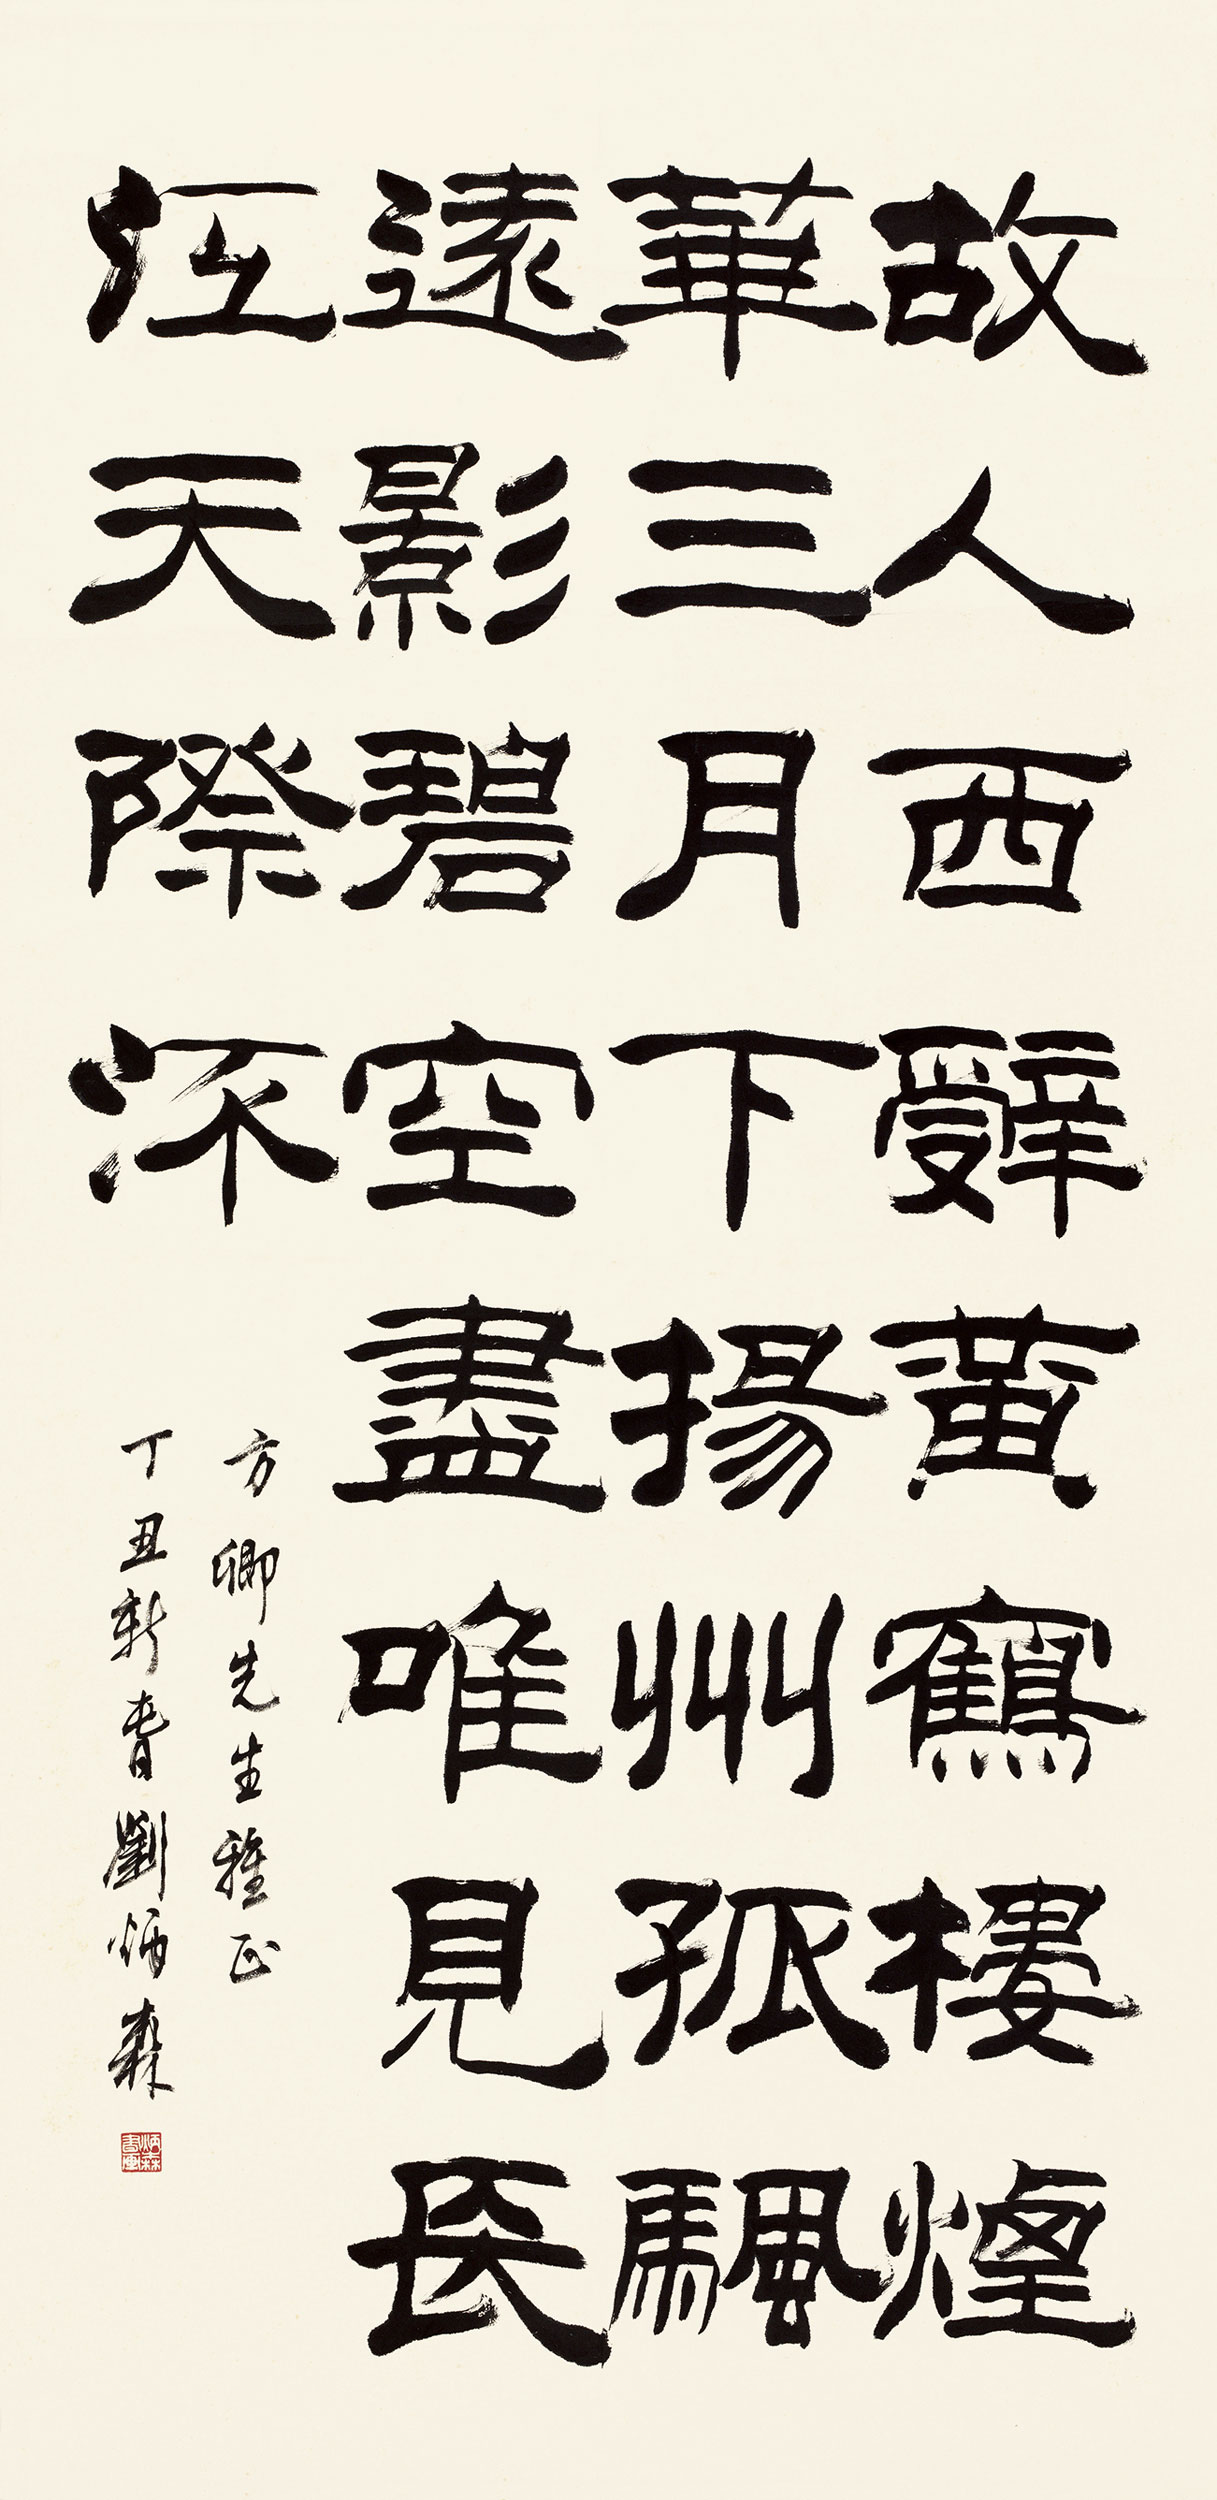 故人西辤黃鶴樓煙
華三月下揚州孤颿
遠影碧空盡唯見長
江天際流
方卿先生雅正
丁丑新春劉炳森
炳森